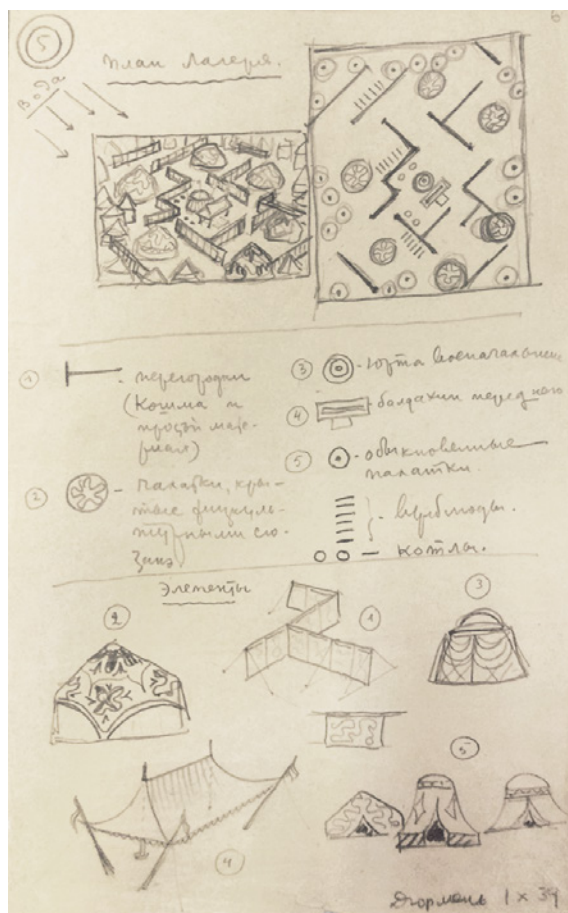 5
6
План Лагеря.
вода
1 - перегородки
(Кошма и
простой мате-
риал)
2 - палатки, кры-
тые
сю-
зане.
3 - юрта военачальника
4 - балдахин перед нею
5 - обыкновенные
палатки.
- верблюды.
- котлы.
Элементы
2
1
3
4
5